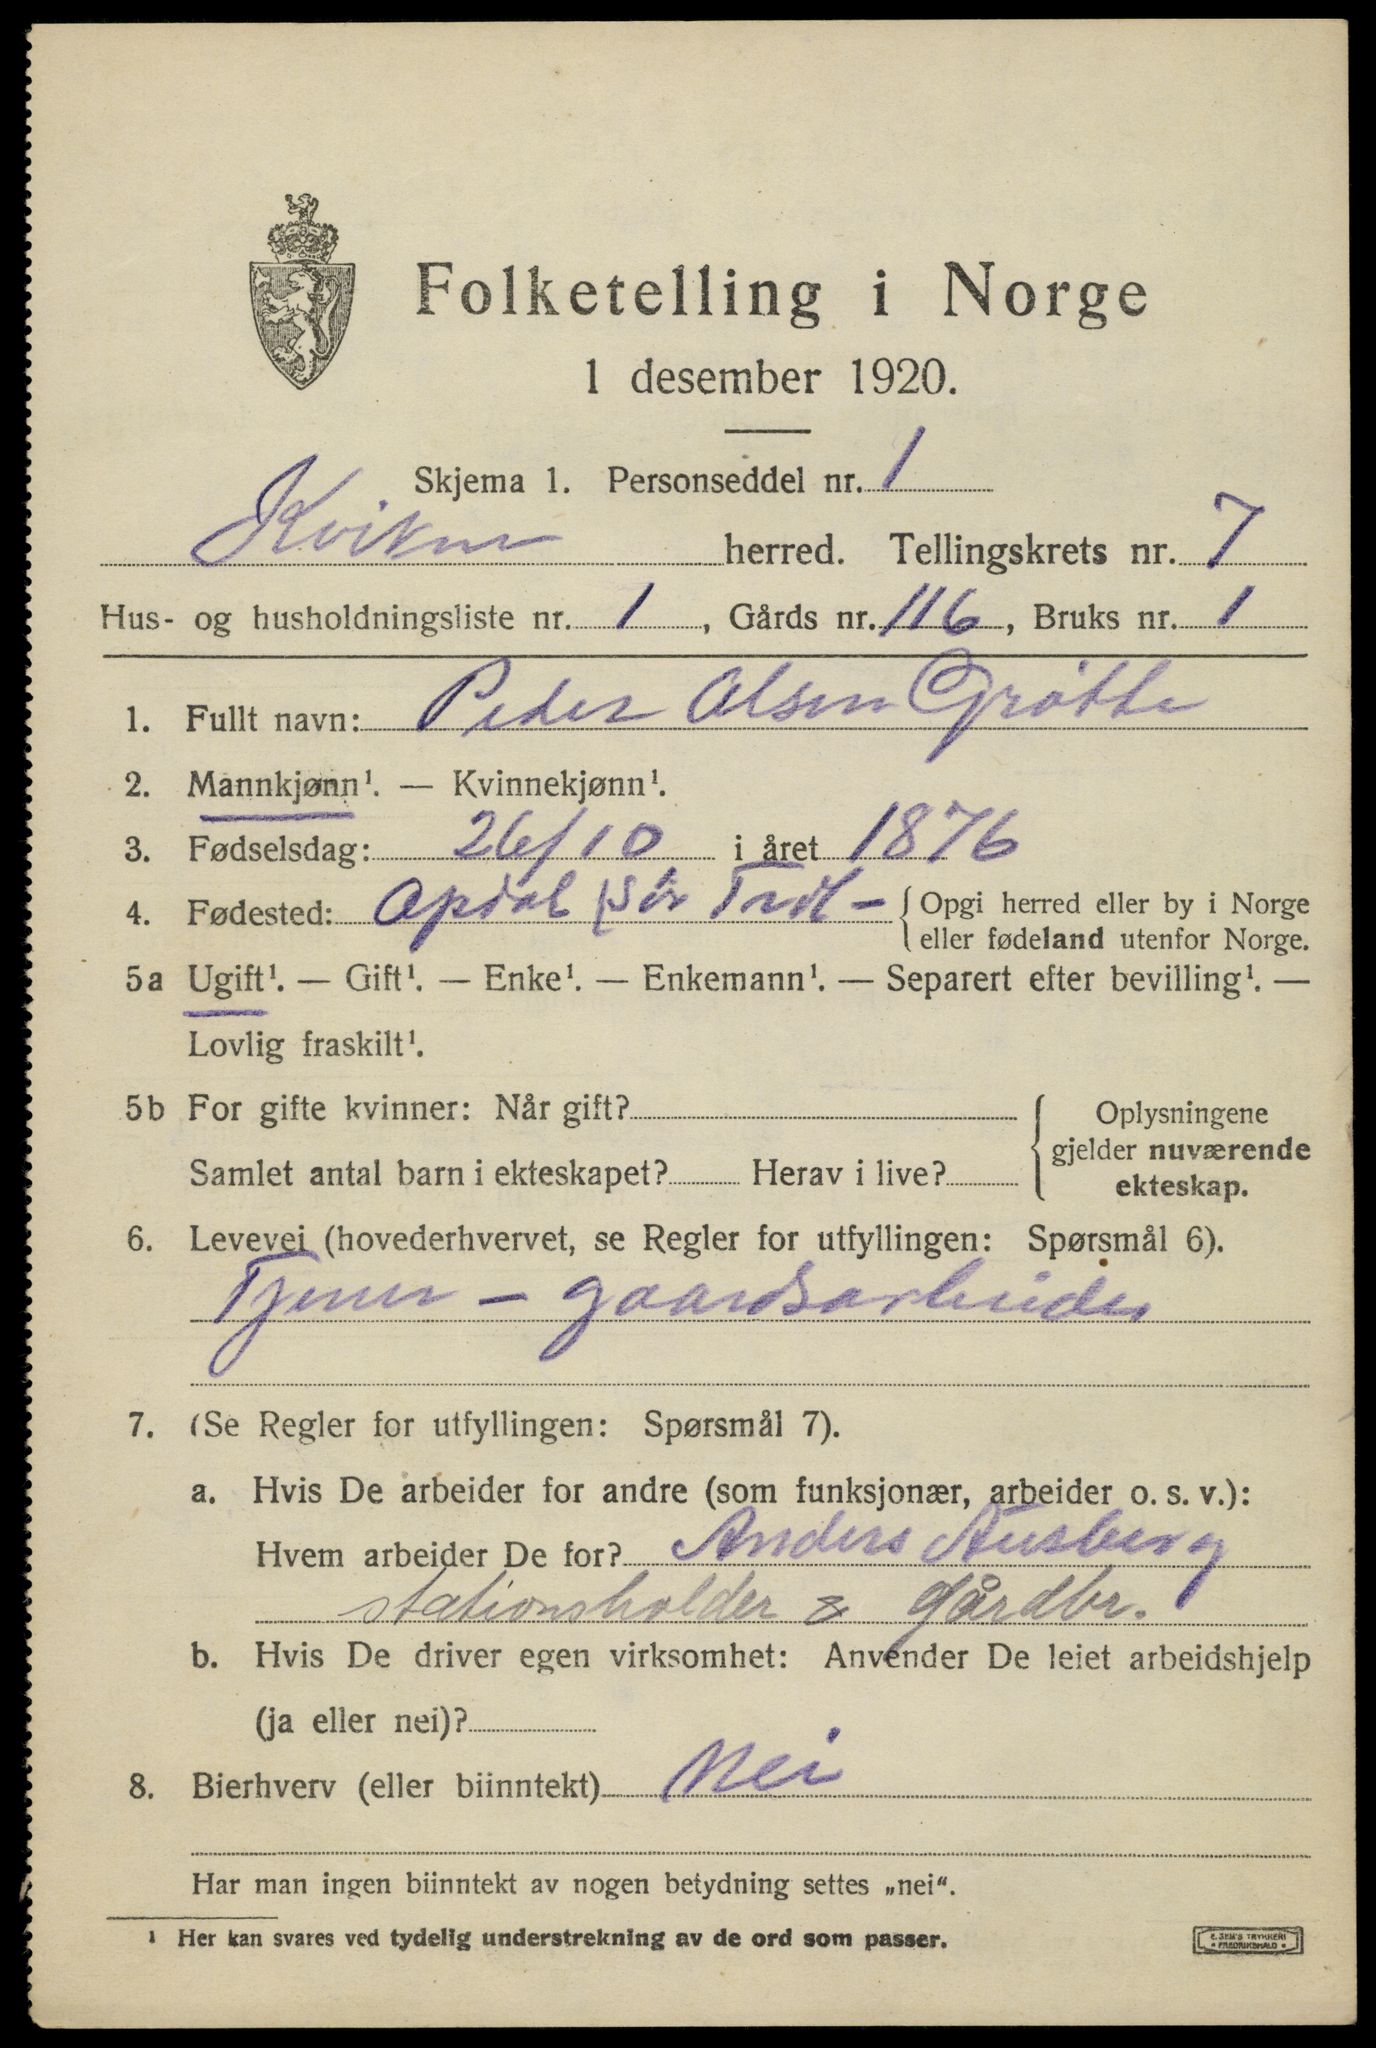 Folketelling i Norge
1 desember 1920.
Skjema 1. Personseddel nr. 1
Kvikne herred. Tellingskrets nr. 7
Hus- og husholdningsliste nr. 1, Gårds nr. 116, Bruks nr. 1
1. Fullt navn: Peder Olsen Grøtte
2. Mannkjønn¹. — Kvinnekjønn¹.
3. Fødselsdag: 26/10 i året 1876
4. Fødested: Opdal Sör Trdl – Opgi herred eller by i Norge
eller fødeland utenfor Norge.
5a Ugift¹. — Gift¹. — Enke¹. — Enkemann¹. — Separert efter bevilling¹. —
Lovlig fraskilt¹.
5b For gifte kvinner: Når gift? Oplysningene
gjelder nuværende
Samlet antal barn i ekteskapet? Herav i live? ekteskap.
6. Levevei (hovederhvervet, se Regler for utfyllingen: Spørsmål 6).
Tjener – gaardsarbeider
7. (Se Regler for utfyllingen: Spørsmål 7).
a. Hvis De arbeider for andre (som funksjonær, arbeider o. s. v.):
Hvem arbeider De for? Anders Ausberg
stationsholder & gårdbr.
b. Hvis De driver egen virksomhet: Anvender De leiet arbeidshjelp
(ja eller nei)?
8. Bierhverv (eller biinntekt) Nei
Har man ingen biinntekt av nogen betydning settes „nei“.
¹ Her kan svares ved tydelig understrekning av de ord som passer.
E. SEM'S TRYKKERI
FREDRIKSHALD